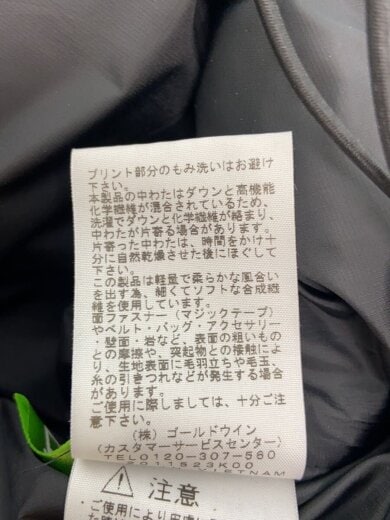 プリント部分のもみ洗いはお避け
下さい。
本製品の中わたはダウンと高機能
化学繊維が混合されているため、
洗濯でダウンと化学繊維が絡まり、
中わたが片寄る場合があります。
片寄った中わたは、時間をかけ十
分に自然乾燥させた後にほぐして
下さい。
この製品は軽量で柔らかな風合い
を出す為、細くてソフトな合成繊
維を使用しています。
面ファスナー(マジックテープ)
やベルト・バッグ・アクセサリー
・壁面・岩など、表面の粗いもの
との摩擦や、突起物との接触によ
り、生地表面に毛羽立ちや毛玉、
糸の引きつれなどが発生する場合
があります。
ご使用に際しましては、十分ご注
意下さい。
(株)ゴールドウイン
(カスタマーサービスセンター)
TEL0120-307-560
VIETNAM
注意
・ご使用により